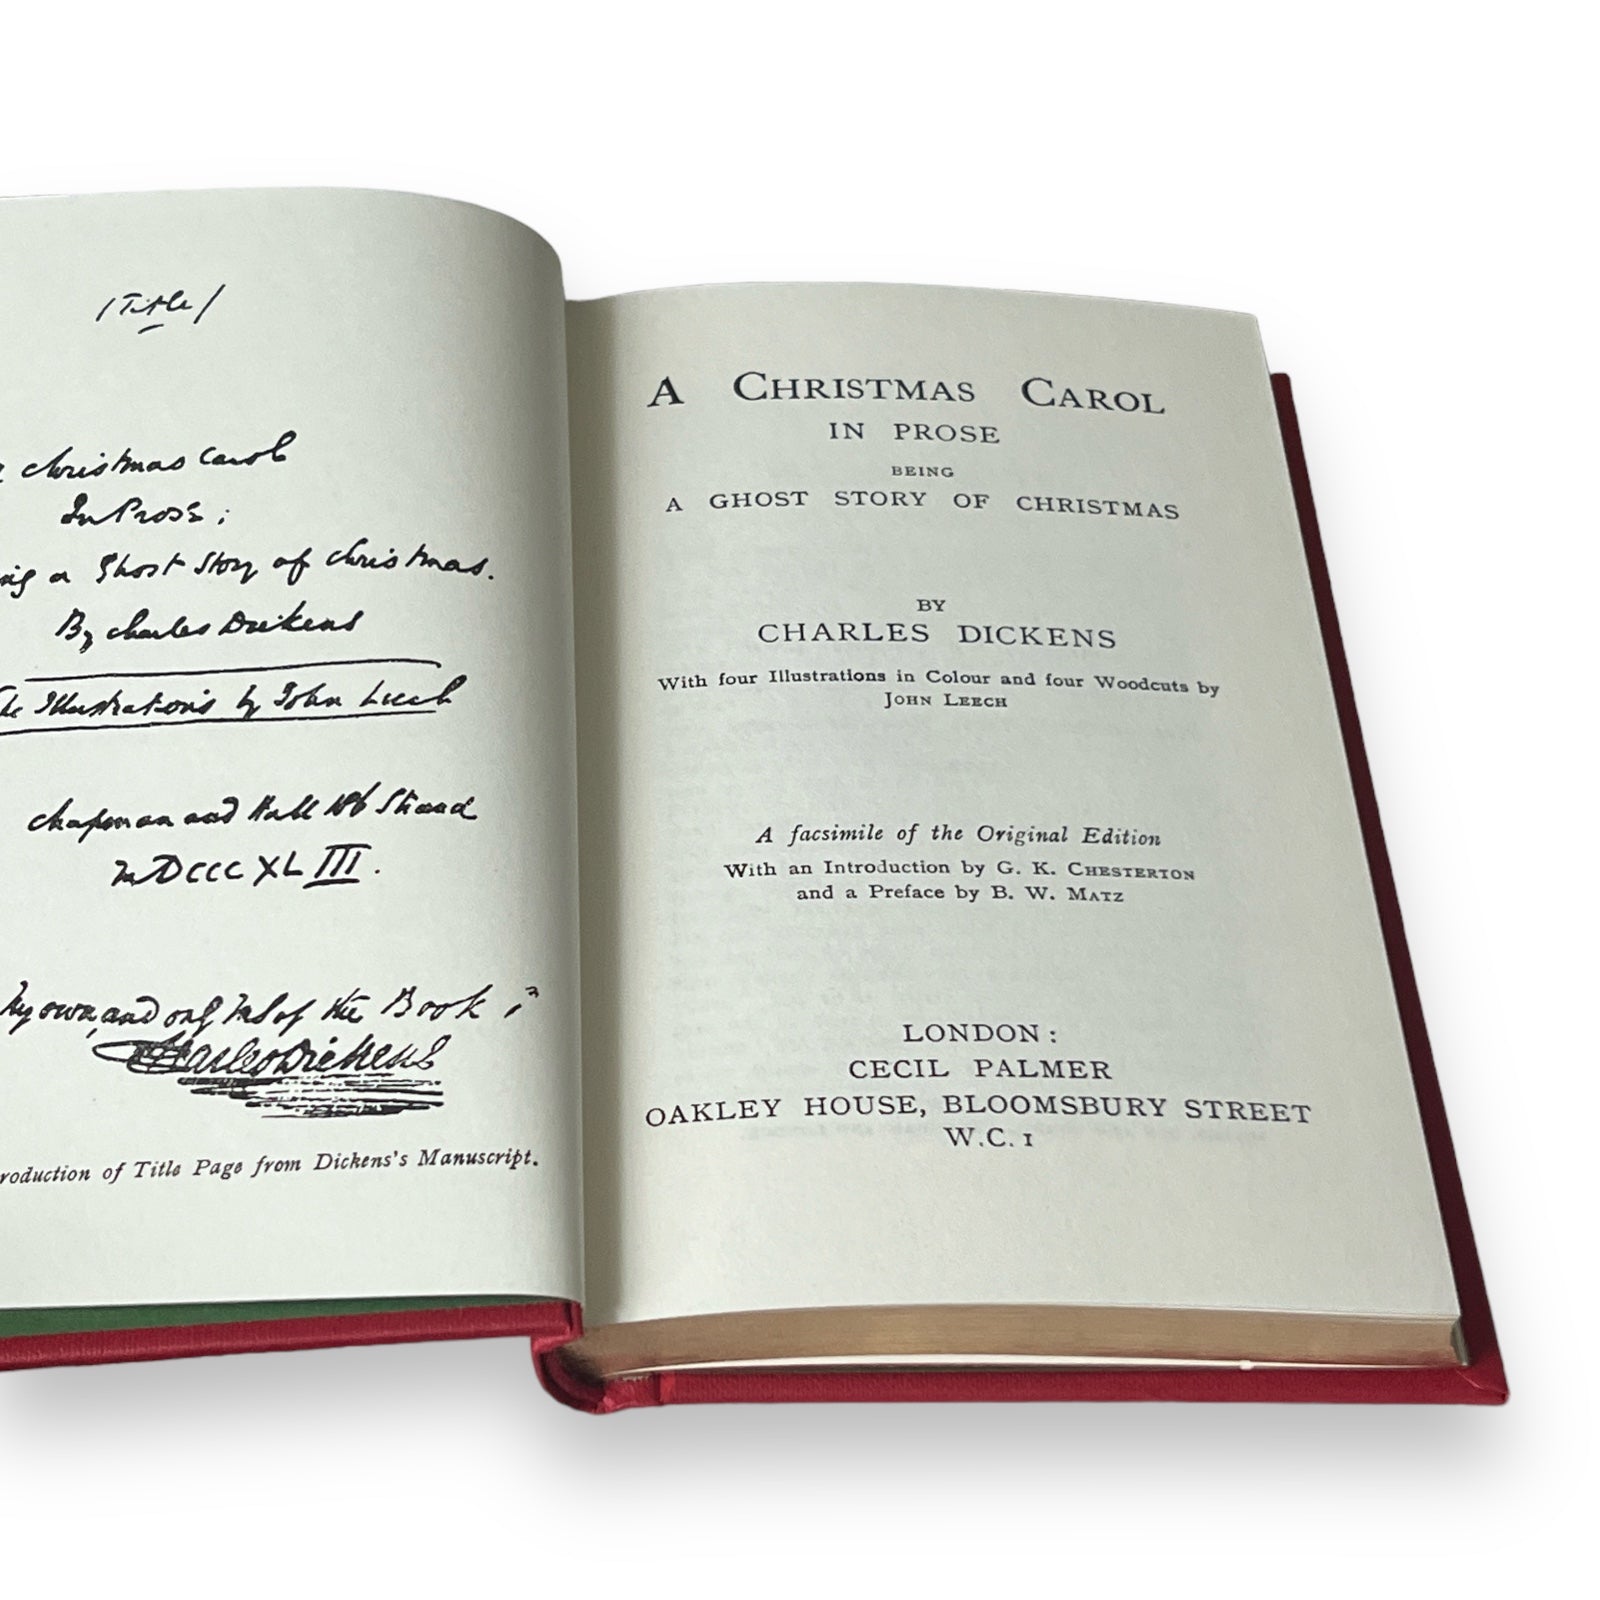 /Title/
Christmas Carol
In Prose;
a Ghost Story of Christmas.
By Charles Dickens
The Illustrations by John Leech
Chapman and Hall 186 Strand
MDCCCXLIII.
My own, and only MS of the Book
Charles Dickens
of Title Page from Dickens's Manuscript.
A CHRISTMAS CAROL
IN PROSE
BEING
A GHOST STORY OF CHRISTMAS
BY
CHARLES DICKENS
With four Illustrations in Colour and four Woodcuts by
JOHN LEECH
A facsimile of the Original Edition
With an Introduction by G. K. CHESTERTON
and a Preface by B. W. MATZ
LONDON:
CECIL PALMER
OAKLEY HOUSE, BLOOMSBURY STREET
W.C. 1